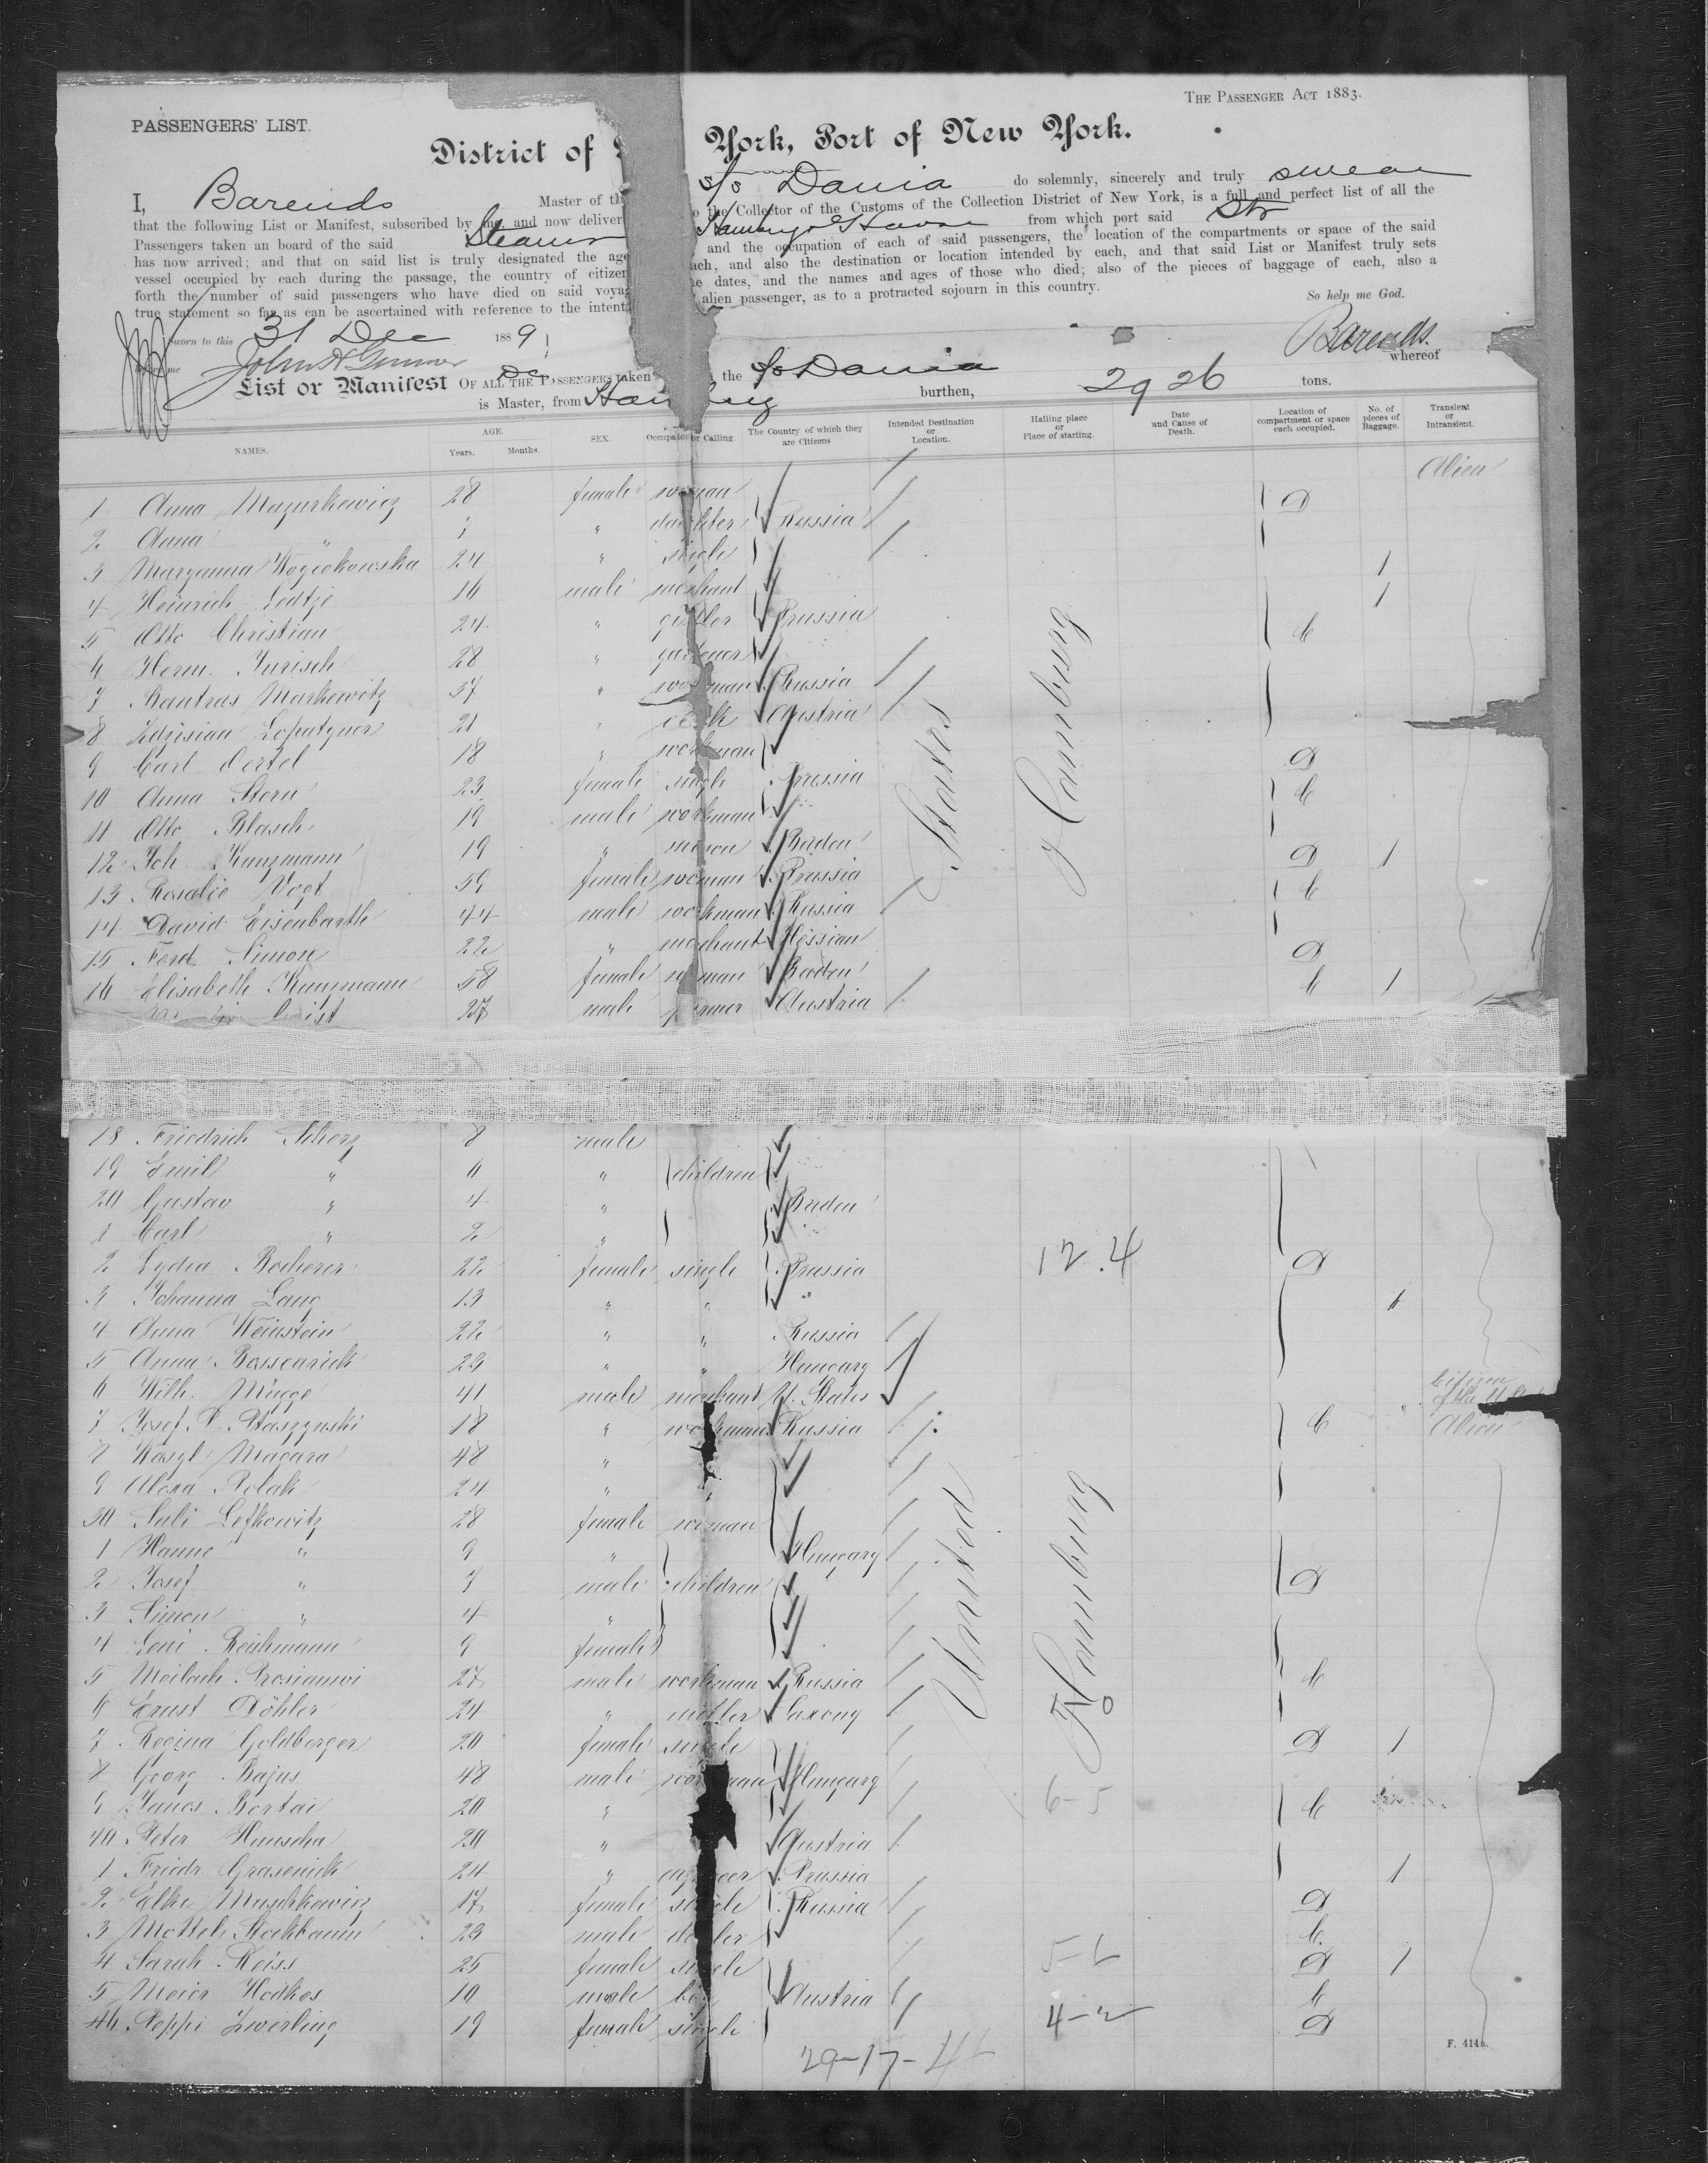 THE PASSENGER ACT 1883.
PASSENGERS' LIST.
District of York, Port of New York.
I, Barends Master of th s/s Dania do solemnly, sincerely and truly swear
that the following List or Manifest, subscribed by me and now deliver o the Collector of the Customs of the Collection District of New York, is a full and perfect list of all the
Passengers taken an board of the said Steamer from which port said Str
has now arrived; and that on said list is truly designated the age and the occupation of each of said passengers, the location of the compartments or space of the said
vessel occupied by each during the passage, the country of citizen ach, and also the destination or location intended by each, and that said List or Manifest truly sets
forth the number of said passengers who have died on said voyag e dates, and the names and ages of those who died; also of the pieces of baggage of each, also a
true statement so far as can be ascertained with reference to the intent alien passenger, as to a protracted sojourn in this country.
So help me God.
Sworn to this 31 Dec 1889
Barends.
whereof
List or Manifest OF ALL THE PASSENGERS taken the s/s Dania
is Master, from burthen, 2926 tons.
NAMES. AGE. Years. Months. SEX. Occupation or Calling. The Country of which they are Citizens Intended Destination or Location. Hailing place or Place of starting. Date and Cause of Death. Location of compartment or space each occupied. No. of pieces of Baggage. Transient or Intransient.
Alien
1 Anna Mazurkewicz 28 female woman D
2 Anna " " daughter Russia
3 Maryanna 24 " single 1
4 Heinrich 16 male merchant 1
5 Otto Christian 24 " Prussia C
6 Herm. Jurisch 28 " gardener
7 Markewitz 37 " workman Russia
8 21 " clerk Austria
9 Carl Oertel 18 " workman D
10 Anna Stern 23 female single Prussia C
11 Otto Blasch 19 male workman
12 Joh. Kunzmann 19 " Baden D 1
13 Rosalie Vogt 59 female woman Prussia C
14 David Eisenbarth 44 male workman Russia
15 Ferd. Simon 22 " merchant Hessian D
16 Elisabeth Kunzmann 58 female woman Baden C 1
27 male farmer Austria
States
Hamburg
18 Friedrich Scherz 8 male
19 Emil " 6 " children
20 Gustav " 4 " Baden
1 Carl " 2 "
2 Lydia Bocherer 22 female single Prussia 12.4 D
3 Johanna Lang 13 " " "
4 Anna Weinstein 22 " " Russia
5 Anna 23 " " Hungary
6 Wilh. Mügge 41 male merchant U. States Citizen of the U.S.
7 Josef P. Staszynski 18 " workman Russia C Alien
8 Magara 48 " "
9 Alexa Polak 24 " "
30 Sali Lefkowitz 28 female woman
1 Hanne " 9 " Hungary
2 Josef " 7 male children D
3 Simon " 4 "
4 Leni Reichmann 9 female
5 27 male workman Russia C
6 Ernst Döhler 24 " miller Saxony
7 Regina Goldberger 20 female single D 1
8 Georg Bajus 48 male workman Hungary 6-5
9 Janos Bertai 20 " C
40 Peter 20 " Austria
1 Friedr. Grasenick 24 " engineer Prussia 1
2 Elke Muschkewicz 17 female single Russia D
3 Mottel Stockbaum 23 male dealer C
4 Sarah Reiss 25 female single 5-6 D 1
5 Meier Hodkes 10 male boy Austria C
46 Peppi Zwerling 19 female single 4-2 D
United
Hamburg
29-17-
F. 414a.